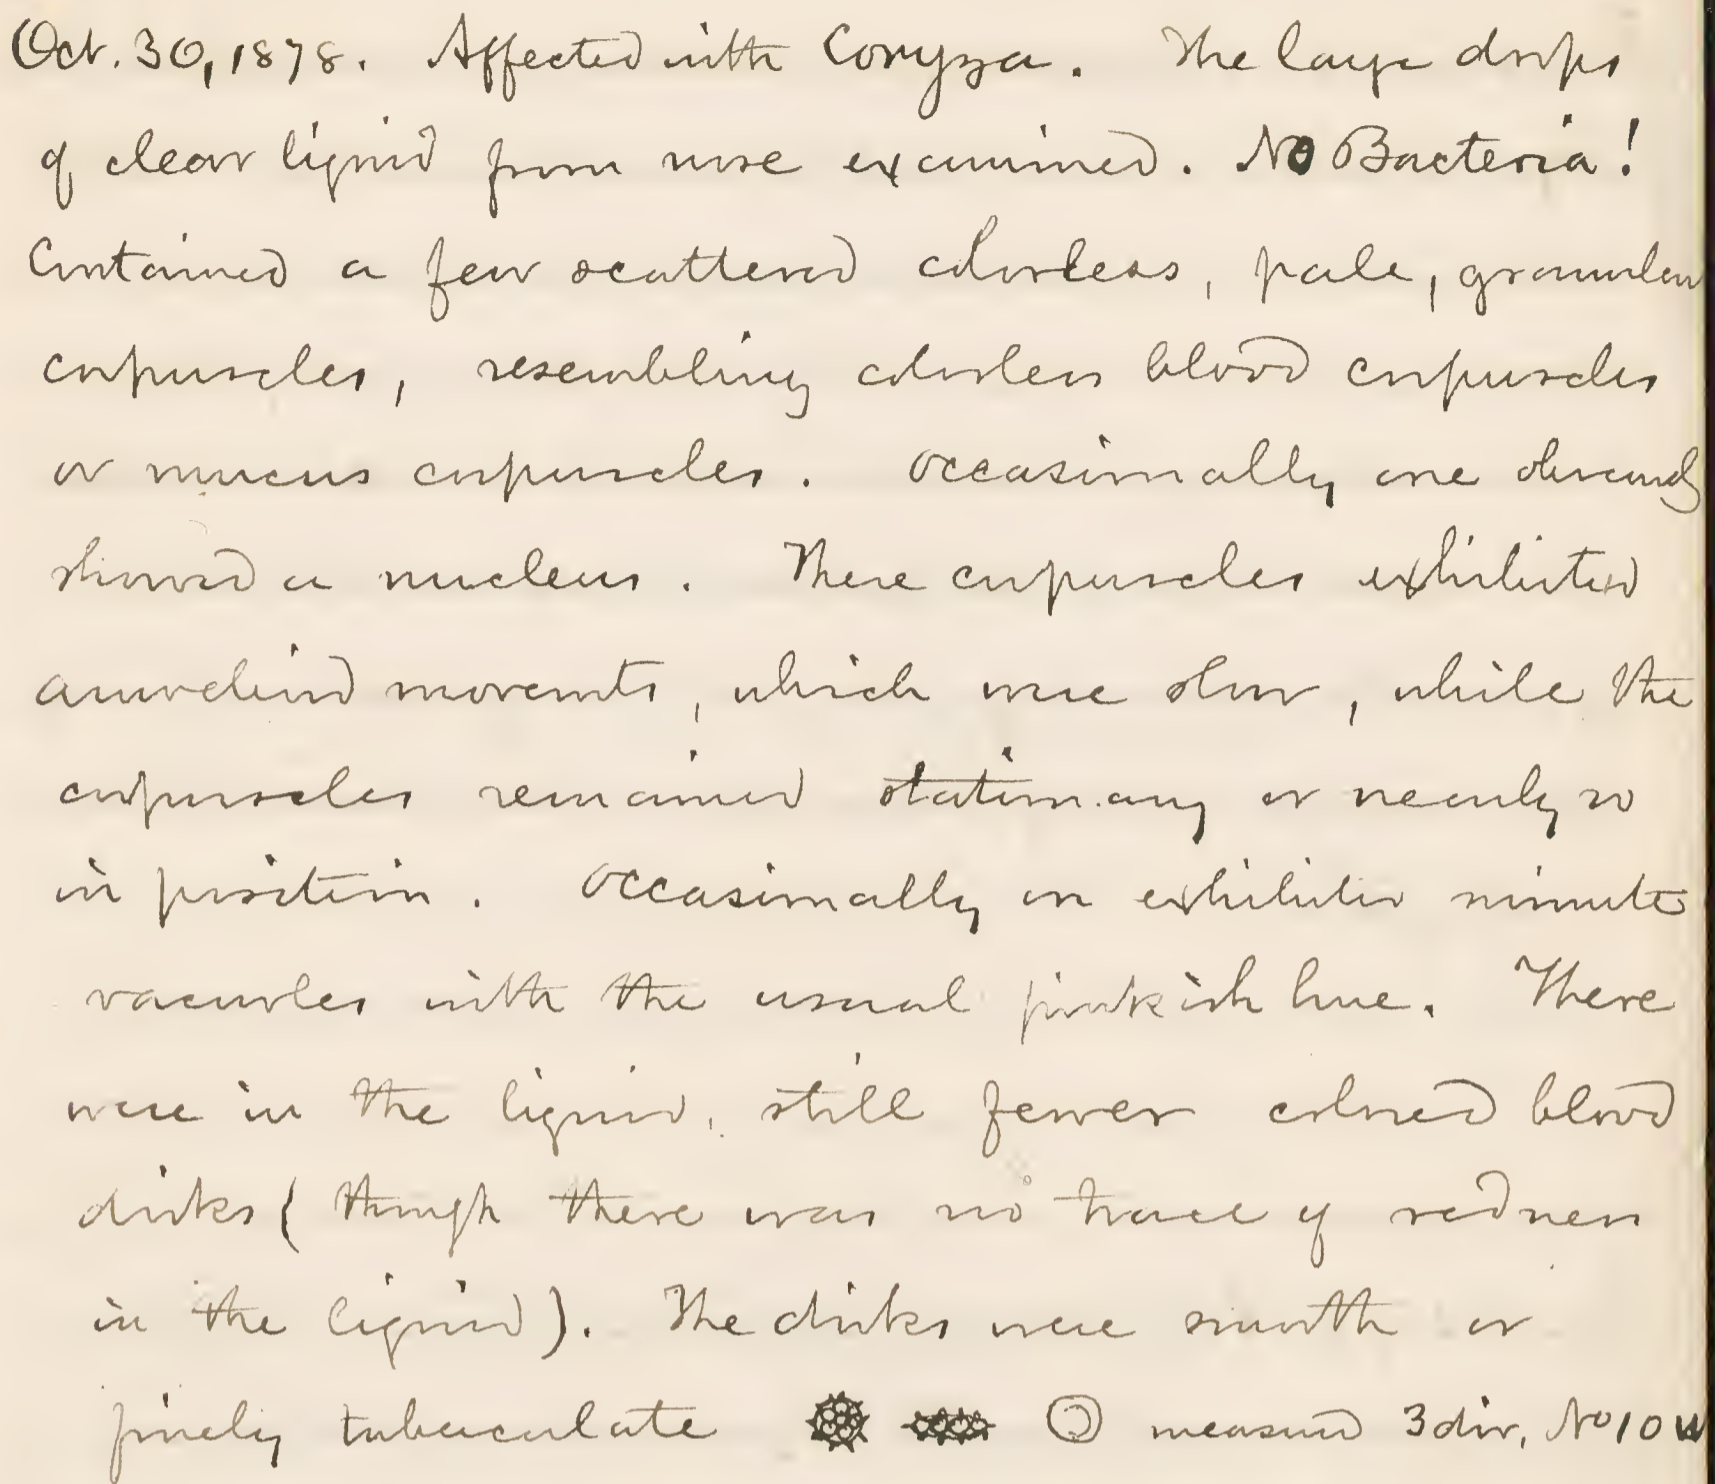 Oct. 30, 1878. Affected with Coryza. The large drops
of clear liquid from nose examined. No Bacteria!
Contained a few scattered colorless, pale, granular
corpuscles, resembling colorless blood corpuscles
or mucus corpuscles. Occasionally one obscurely
showed a nucleus. These corpuscles exhibited
amoeboid movemts, which were slow, while the
corpuscles remained stationary or nearly so
in position. Occasionally on exhibited minute
vacuoles with the usual pinkish hue. There
were in the liquid, still fewer colored blood
disks (though there was no trace of redness
in the liquid). The disks were smooth or
finely tuberculate measured 3 div. No 10